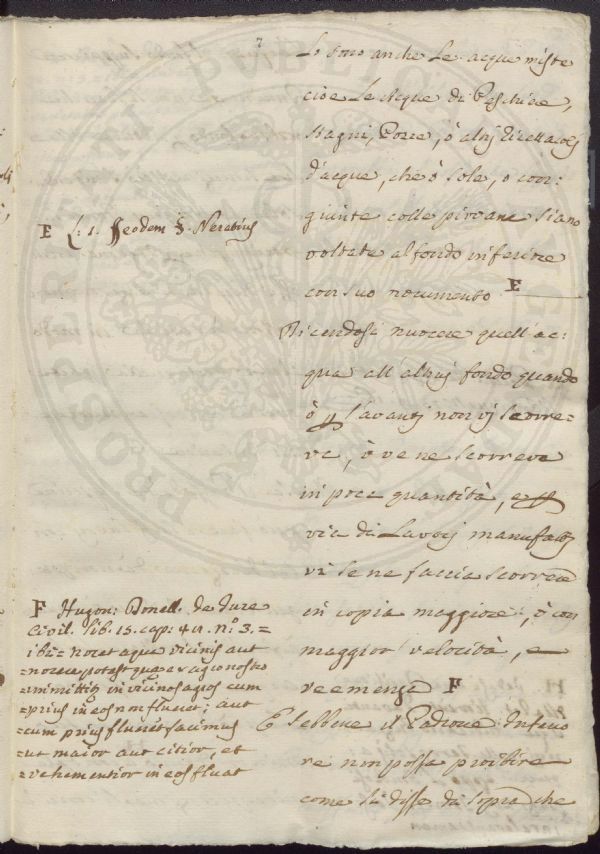 7
Lo sono anche le acque miste
cioè le Acque di Peschiere,
stagni, Pozze, ò altri Ricettacoli
d'acque, che ò sole, o con:
giunte colle piovane siano
voltate al fondo inferiore
con suo nocumento E
Dicendosi nuocere quell'ac:
qua all'altrui fondo quando
ò per l'avanti non vi scorre=
va, ò ve ne scorreva
in poca quantità, e per
via di Lavori manufatti
vi se ne faccia scorrere
in copia maggiore, ò con
maggior velocità, e
veemenza F
E sebbene il Padrone Inferio
re non possa proibire
come si disse di sopra che
E L: 1. §. Neratius
F Hugon: Donell. de Iure
Civil. lib. 15. cap: n.º 3. =
ibi = nocet aque vicinis aut
= nocere potest quae ex agro nostro
= immittitur in vicinos agros cum
= prius in eos non flueret; aut
= cum prius flueret facimus
= ut maior aut citior, et
= vehementior in eos fluat
PROSPERITATI PUBLICAE